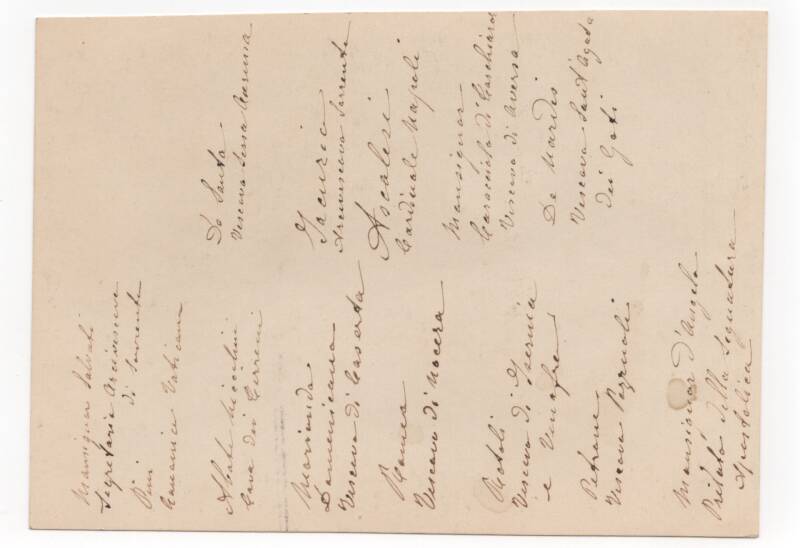 Monsignor Salvati
Segretario Arcivescovo
di Sorrento
Pini
Canonico Vaticano
Abate
Cava dei Tirreni
Moriondo
Domenicano
Vescovo di Caserta
Romeo
Vescovo di Nocera
Rotoli
Vescovo di Isernia
e Venafro
Petrone
Vescovo Pozzuoli
Monsignor d'Angelo
Prelato della Segnatura
Apostolica
De Santa
Vescovo Sessa Aurunca
Jacuzio
Arcivescovo Sorrento
Ascalesi
Cardinale Napoli
Monsignor
Caracciolo di
Vescovo di Aversa
De Nardis
Vescovo Sant'Agata
dei Goti